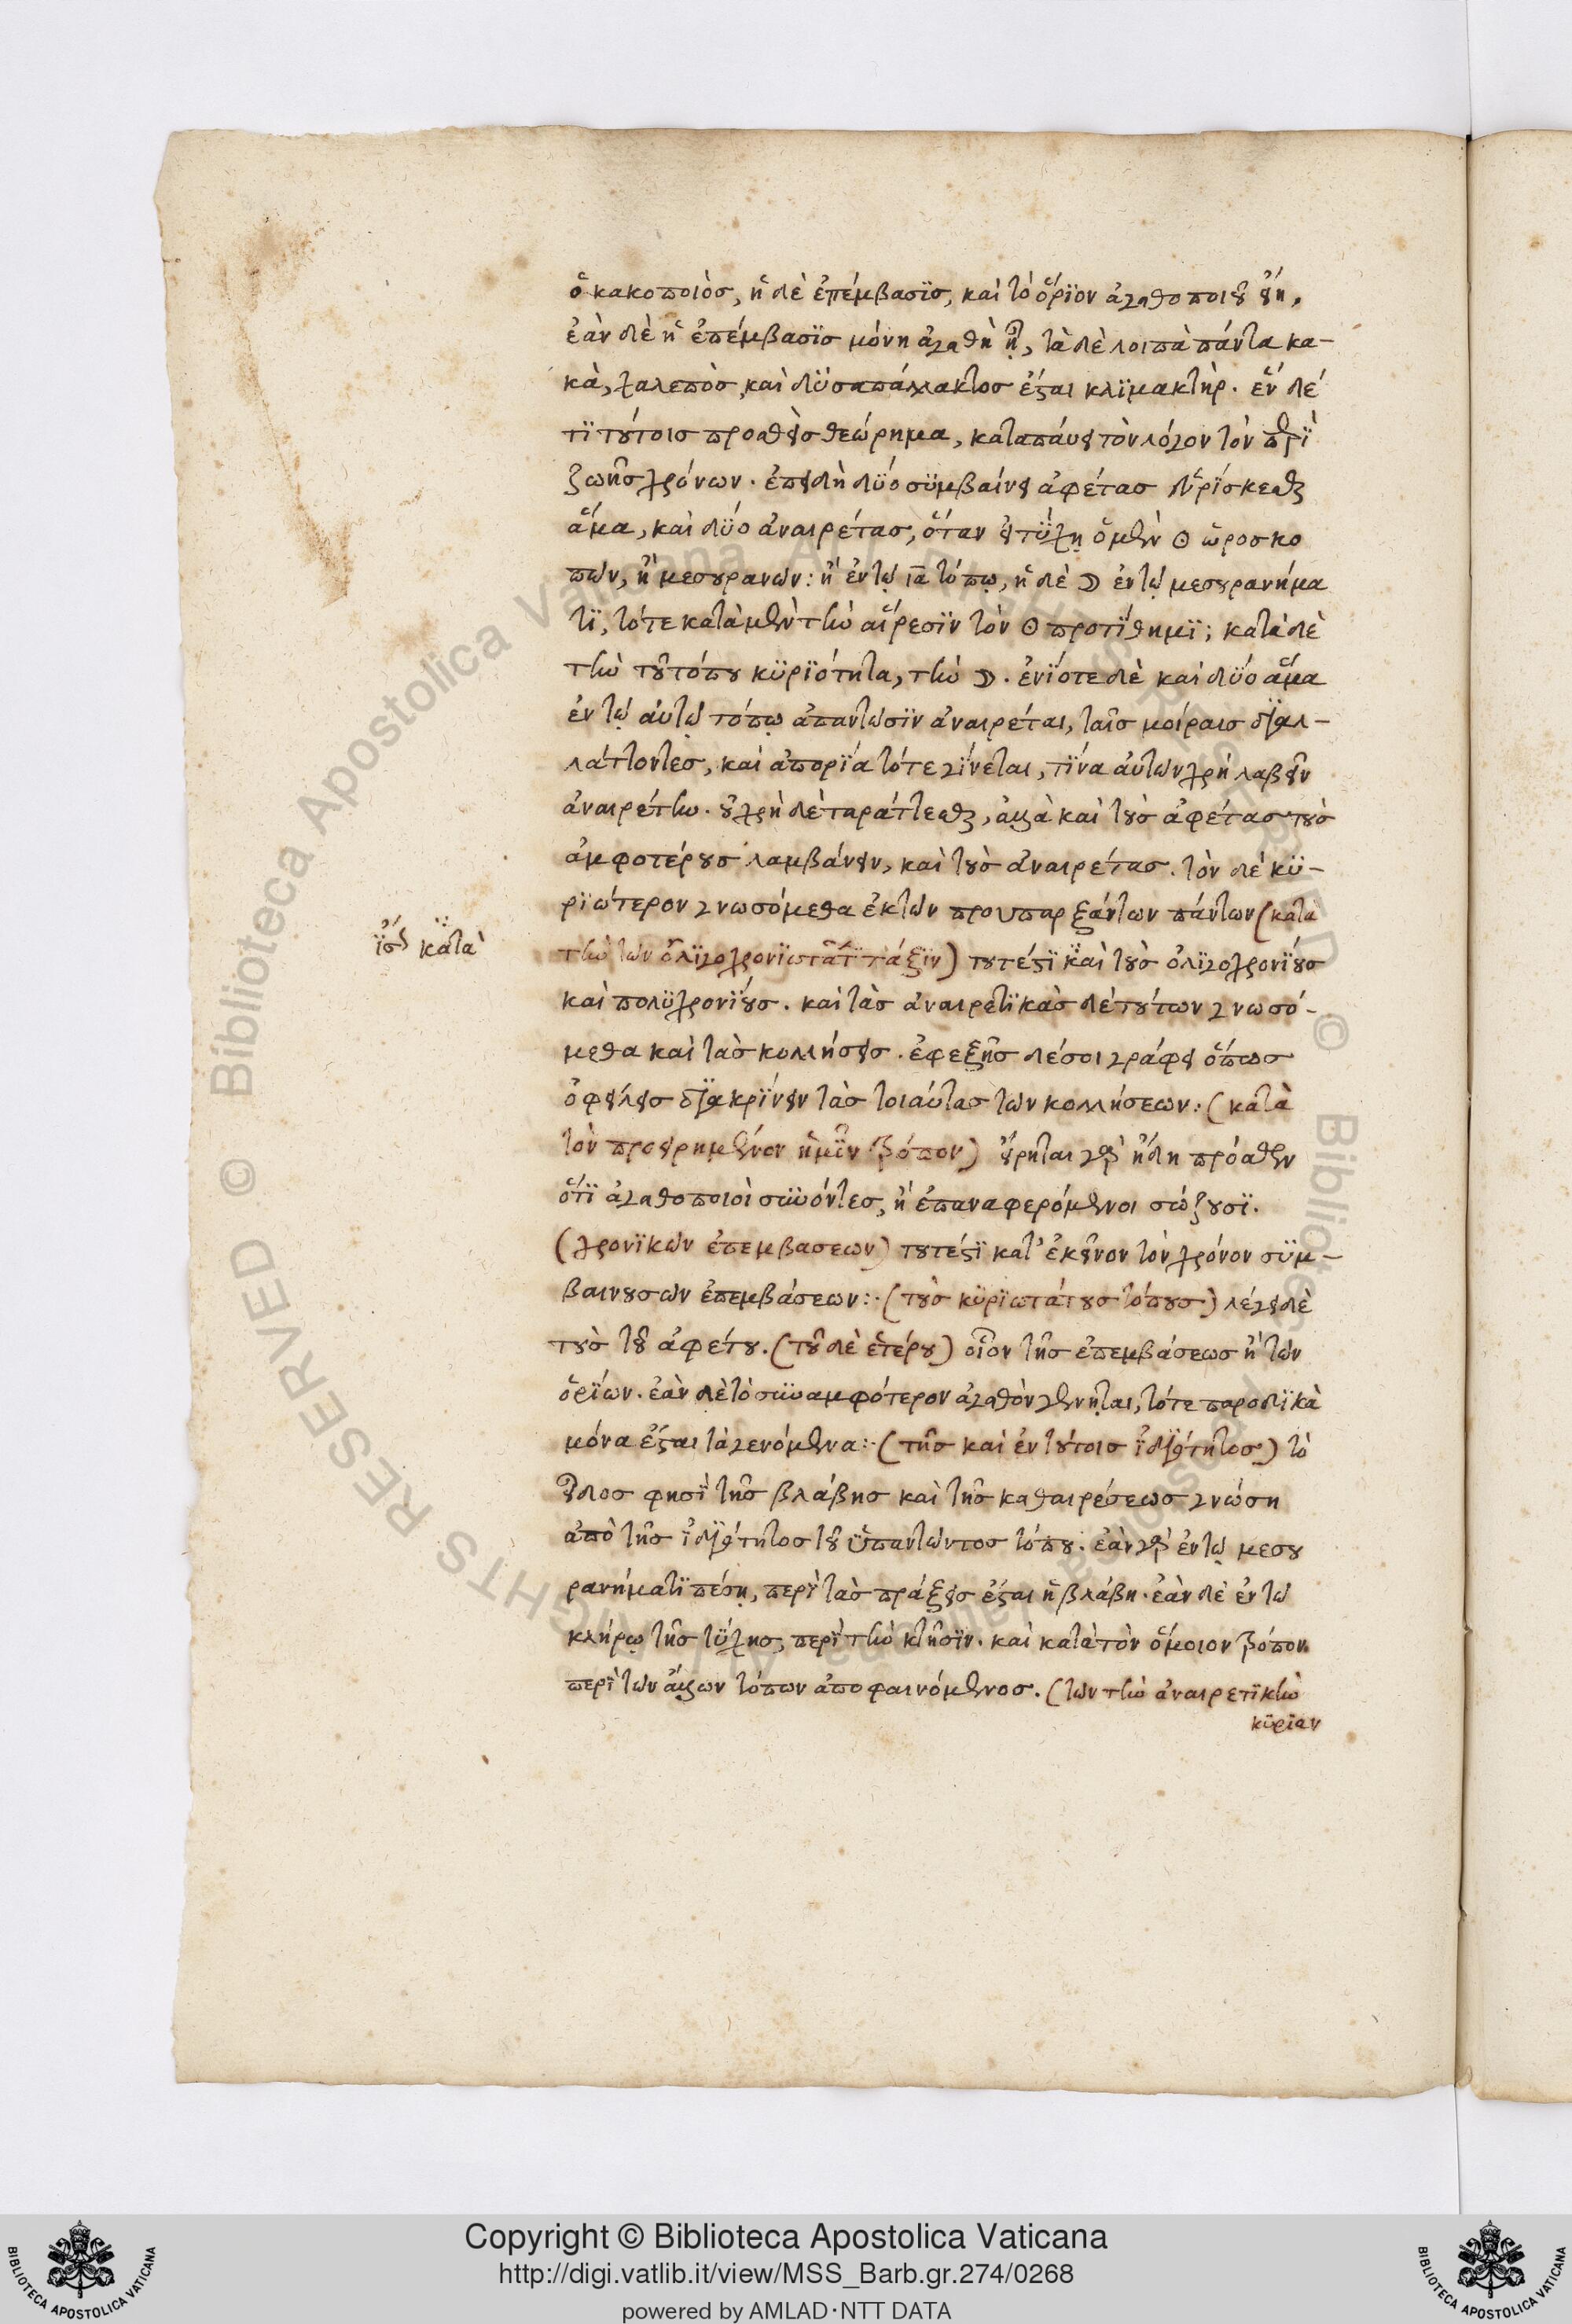 ὁ κακοποιὸσ, ἡ δὲ ἐπέμβασϊσ, καὶ τὸ ὅρϊον ἀγαθοποιοῦ εἴη,
ἐὰν δὲ ἡ ἐπέμβασϊσ μόνη ἀγαθὴ ᾖ, τὰ δὲ λοιπὰ πάντα κα-
κὰ, χαλεπὸσ, καὶ δϋσαπάλλακτοσ ἔσται κλϊμακτήρ. ἓν δέ
τϊ τούτοισ προσθεὶσ θεώρημα, καταπαύει τὸν λόγον τὸν περὶ
ζωῆσ χρόνων. ἐπειδὴ δϋό σϋμβαίνει ἀφέτασ εὑρίσκεσθαι
ἅμα, καὶ δϋό ἀναιρέτασ, ὅταν εἰ τϋχῃ ὁ μὲν ☉ ὡροσκο
πῶν, ἢ μεσουρανῶν: ἢ ἐν τῷ ια τόπῳ, ἡ δὲ ☽ ἐν τῷ μεσουρανήμα
τϊ, τότε κατὰ μὲν τὴν αἵρεσϊν τὸν ☉ προτίθημϊ; κατὰ δὲ
τὴν τοῦ τόπου κϋρϊότητα, τὴν ☽. ἐνϊότε δὲ καὶ δϋό ἅμα
ἐν τῷ αὐτῷ τόπῳ ἀπαντῶσϊν ἀναιρέται, ταῖσ μοίραισ δϊαλ-
λάττοντεσ, καὶ ἀπορϊα τότε γίνεται, τϊνα αὐτῶν χρὴ λαβεῖν
ἀναιρέτην. οὐ χρὴ δὲ ταράττεσθαι, ἀλλὰ καὶ τοὺσ ἀφέτασ τοὺσ
ἀμφοτέρουσ λαμβάνειν, καὶ τοὺσ ἀναιρέτασ. τὸν δὲ κϋ-
ρϊώτερον γνωσόμεθα ἐκ τῶν προυπαρξάντων πάντων (κατὰ
τὴν τῶν ὀλϊγοχρονϊωτάτ τάξϊν) τουτέστϊ καὶ τοὺσ ὀλϊγοχρονίουσ
ἴσ κατὰ
καὶ πολϋχρονίουσ. καὶ τὰσ ἀναιρετϊκὰσ δὲ τούτων γνωσό-
μεθα καὶ τὰσ κολλήσεισ. ἐφεξῆσ δέ σοι γράφει ὅπωσ
ὀφείλεισ δϊακρϊνειν τὰσ τοιαύτασ τῶν κολλήσεων: (κατὰ
τὸν προειρημένον ἡμῖν τρόπον) εἴρηται γὰρ ἤδη πρόσθεν
ὅτϊ ἀγαθοποιοὶ συνόντεσ, ἢ ἐπαναφερόμενοι σώζουσϊ.
(χρονϊκῶν ἐπεμβασεων) τουτέστϊ κατ' ἐκεῖνον τὸν χρόνον σϋμ-
βαινουσῶν ἐπεμβάσεων: (τοὺσ κϋρϊωτάτουσ τόπουσ) λέγει δὲ
τοὺσ τοῦ ἀφέτου. (τοῦ δὲ ἑτέρου) οἷον τῆσ ἐπεμβάσεωσ ἢ τῶν
ὁρϊων. ἐὰν δὲ τὸ συναμφότερον ἀγαθὸν γένηται, τότε παροδϊκὰ
μόνα ἔσται τὰ γενόμενα: (τῆσ καὶ ἐν τούτοισ ἰδϊότητοσ) τὸ
εἶδοσ φησϊ τῆσ βλάβησ καὶ τῆσ καθαιρέσεωσ γνώσῃ
ἀπὸ τῆσ ἰδϊότητοσ τοῦ ϋπαντῶντοσ τόπου. ἐὰν γὰρ ἐν τῷ μεσου
ρανήματϊ πέσῃ, περὶ τὰσ πράξεισ ἔσται ἡ βλάβη. ἐὰν δὲ ἐν τῷ
κλήρῳ τῆσ τϋχησ, περὶ τὴν κτῆσϊν. καὶ κατὰ τὸν ὅμοιον τρόπον
περὶ τῶν ἄλλων τόπων ἀποφαινόμενοσ. (τῶν τὴν ἀναιρετϊκὴν
κϋρϊαν
Copyright © Biblioteca Apostolica Vaticana
http://digi.vatlib.it/view/MSS_Barb.gr.274/0268
powered by AMLAD·NTT DATA